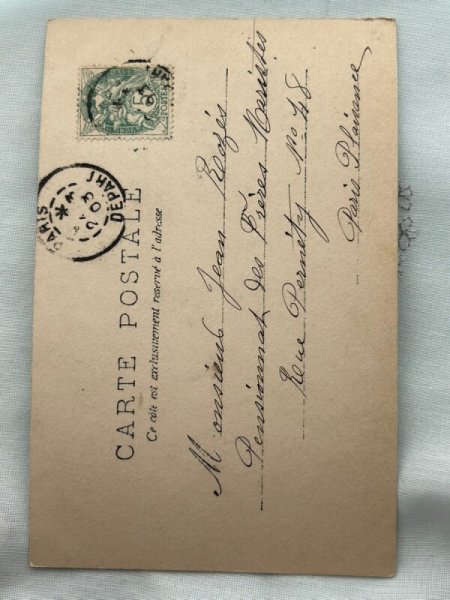 CARTE POSTALE
Ce côté est exclusivement réservé à l'adresse
PARIS
DEPART
03
5
Monsieur Jean Rozès
Pensionnat des Frères Maristes
Rue Pernéty No 48
Paris Plaisance